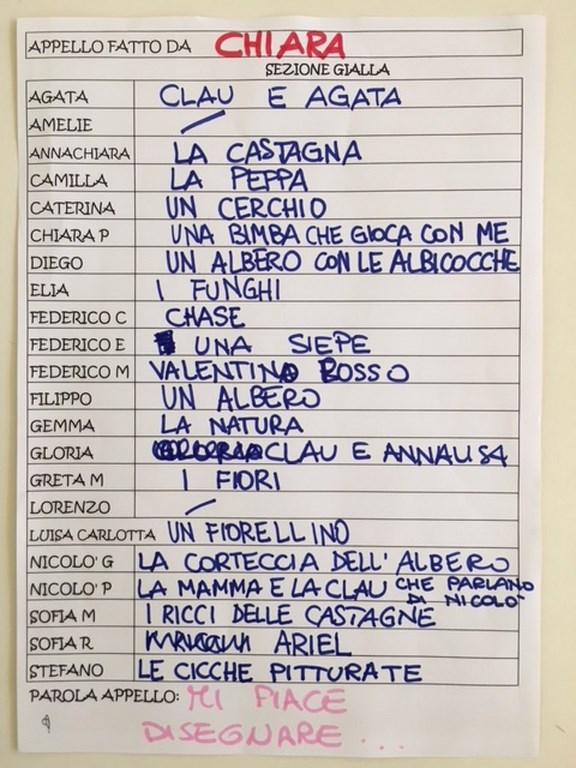 APPELLO FATTO DA CHIARA
SEZIONE GIALLA
AGATA CLAU E AGATA
AMELIE /
ANNACHIARA LA CASTAGNA
CAMILLA LA PEPPA
CATERINA UN CERCHIO
CHIARA P UNA BIMBA CHE GIOCA CON ME
DIEGO UN ALBERO CON LE ALBICOCCHE
ELIA I FUNGHI
FEDERICO C CHASE
FEDERICO E UNA SIEPE
FEDERICO M VALENTINO ROSSO
FILIPPO UN ALBERO
GEMMA LA NATURA
GLORIA CLAU E ANNALISA
GRETA M I FIORI
LORENZO /
LUISA CARLOTTA UN FIORELLINO
NICOLO' G LA CORTECCIA DELL'ALBERO
NICOLO' P LA MAMMA E LA CLAU CHE PARLANO
DI NICOLO'
SOFIA M I RICCI DELLE CASTAGNE
SOFIA R ARIEL
STEFANO LE CICCHE PITTURATE
PAROLA APPELLO: MI PIACE
DISEGNARE ...